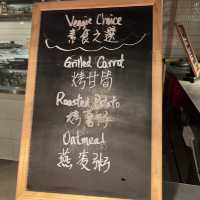 Veggie Choice
素食之選
Grilled Carrot
烤甘筍
Roasted Potato
烤薯仔
Oatmeal
燕麥粥